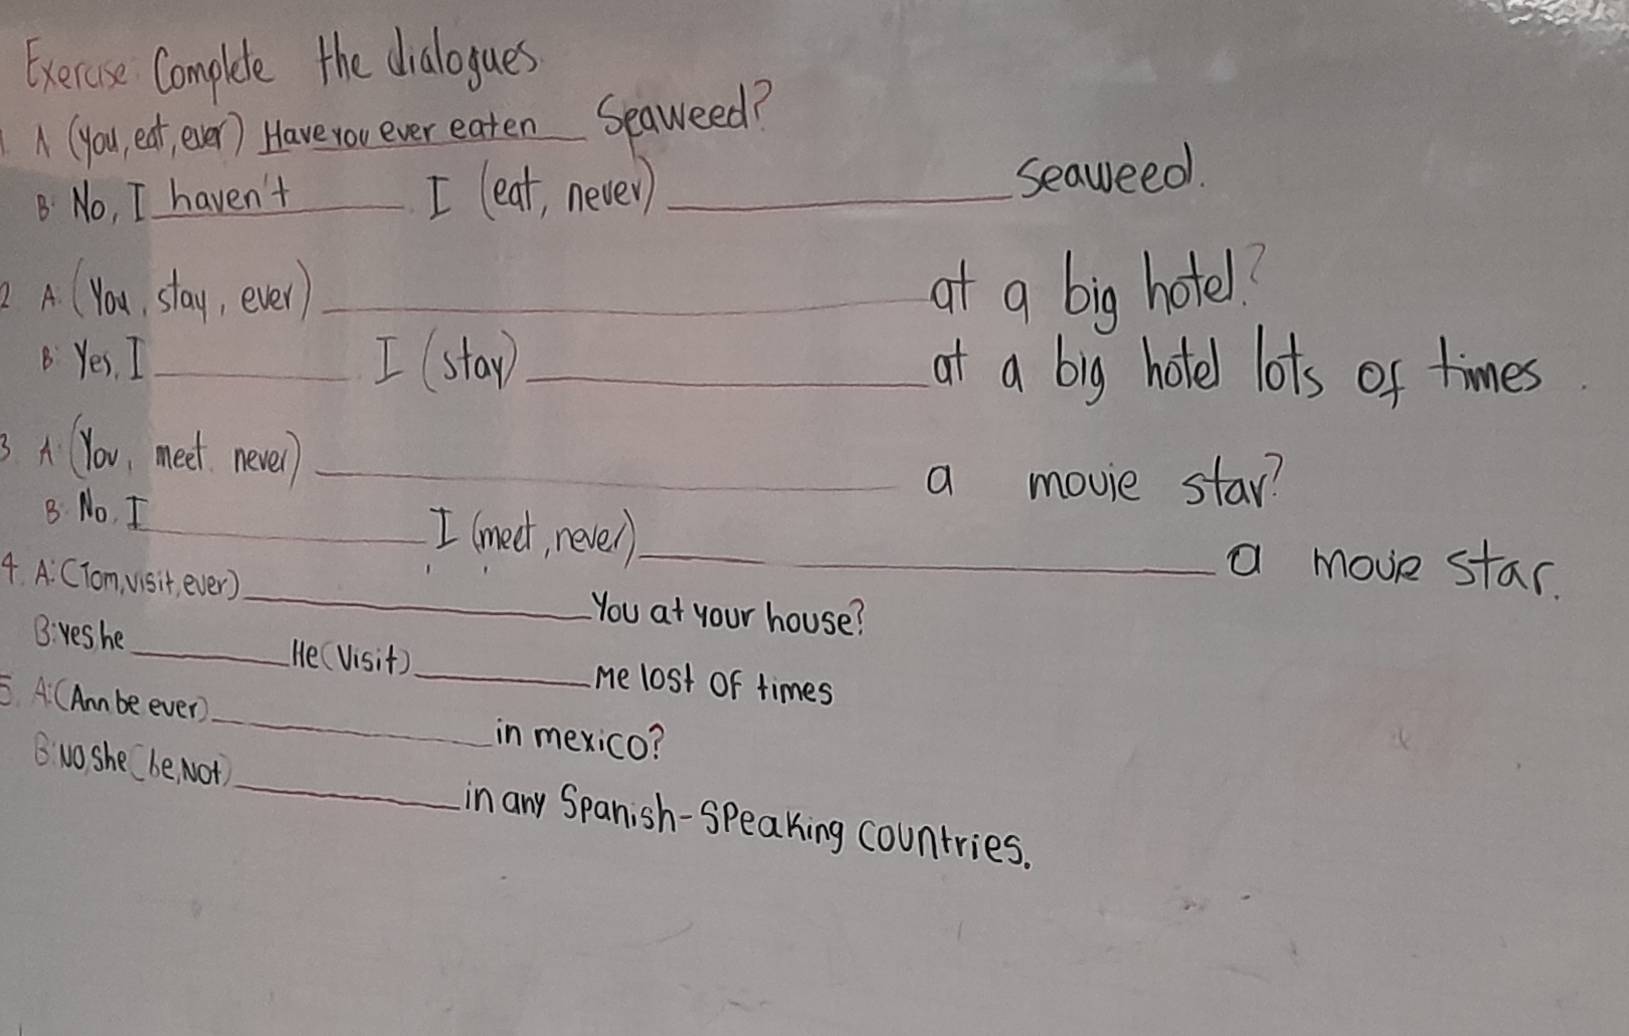 Exercise: Complete the dialogues.
1. A (you, eat, ever) Have you ever eaten Seaweed?
B: No, I haven't. I (eat, never) ____________ seaweed.
2 A: (You, stay, ever) ____________ at a big hotel?
B: Yes, I ________. I (stay) ____________ at a big hotel lots of times.
3. A: (You, meet, never) ____________ a movie star?
B: No, I ____________ I (meet, never) ____________ a movie star.
4. A: (Tom, visit, ever) ____________ You at your house?
B: yes, he ________ He (Visit) ________ Me lost OF times
5. A: (Ann be ever) ____________ in mexico?
B: No, she (be, Not) ____________ in any Spanish-Speaking countries.